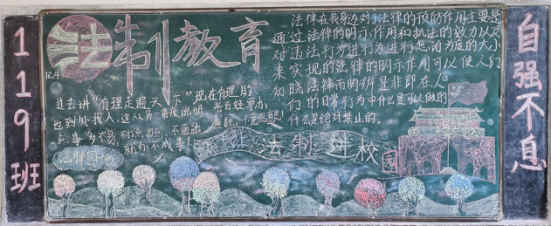 119班
法制教育
12.4
过去讲“有理走遍天下”现在有理的
也到处找人。这从另一角度说明
法律在我身边对于法律的预防作用主要是
通过法律的明示作用和执法的效力以及
对违法行为进行惩治力度的大小
来实现的法律的明示作用可以使人们
知晓法律而明辨是非即在人
们的日常行为中什么是可以做的
什么是绝对禁止的。
让法制进校园
自强不息